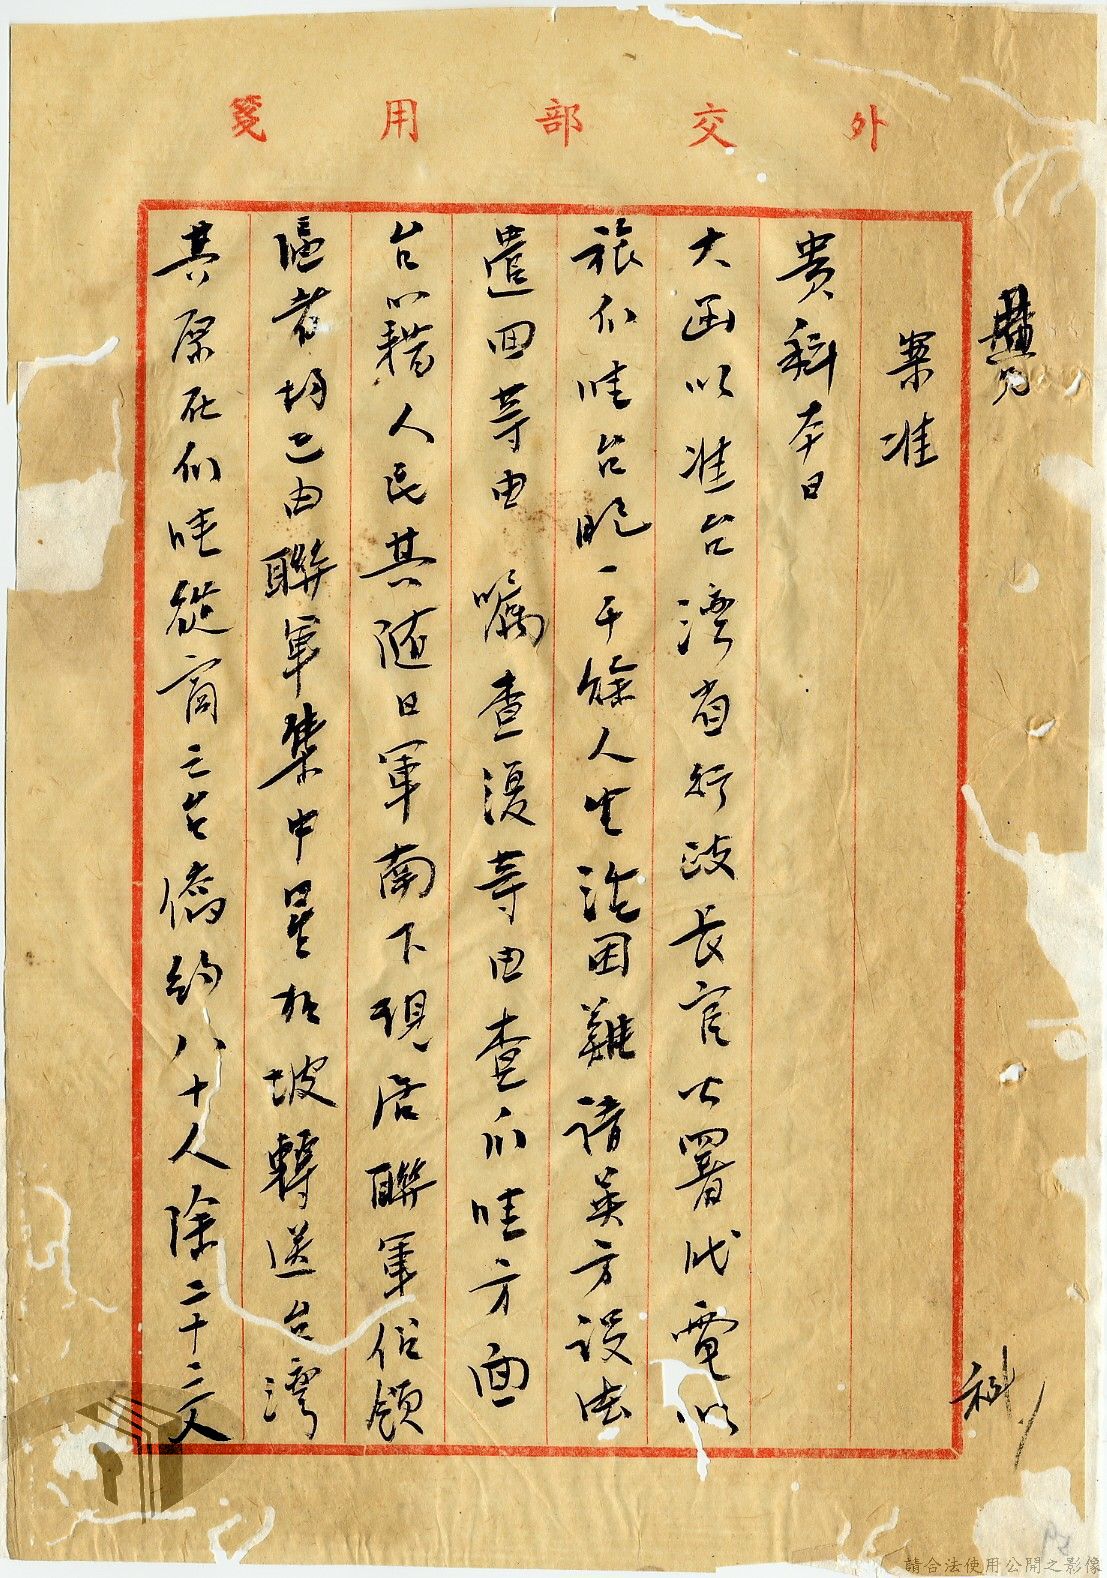 外交部用箋
案准
貴科本日
大函以准台灣省行政長官公署代電以
旅爪哇台胞一千餘人生活困難請英方設法
遣回等由囑查復等由查爪哇方面
台籍人民其隨日軍南下現居聯軍佔領
區者均已由聯軍集中星加坡轉送台灣
其原在爪哇從商之台僑約八十人除二十二人
科
請合法使用公開之影像